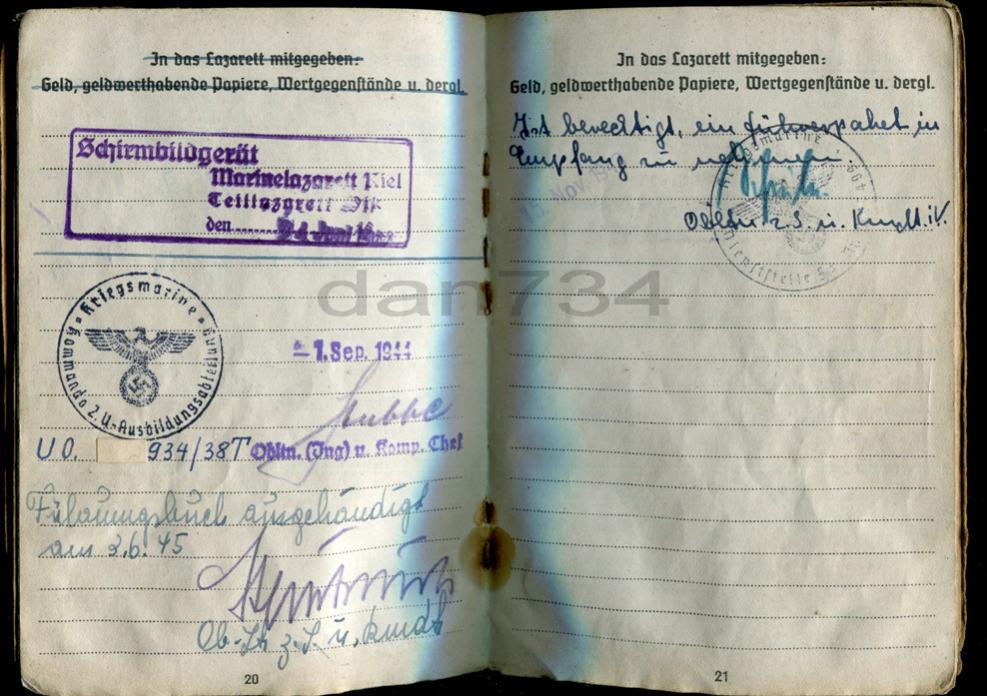 In das Lazarett mitgegeben:
Geld, geldwerthabende Papiere, Wertgegenstände u. dergl.
Schirmbildgerät
Marinelazarett Kiel
Teillazarett
den
Kriegsmarine
Kommando 2. U-Ausbildungsabteilung
- 1. Sep. 1944
UO. 934/38T Obltn. (Ing) u. Komp. Chef
ausgehändigt
am 3.6.45
Ob. Lt z. S. u. Kmdt
20
In das Lazarett mitgegeben:
Geld, geldwerthabende Papiere, Wertgegenstände u. dergl.
Ist berechtigt, ein Führerpaket in
Empfang zu nehmen.
Kriegsmarine
Dienststelle
Nov.
Obltn z. S. u. Kmdt. i.V.
21
dan734